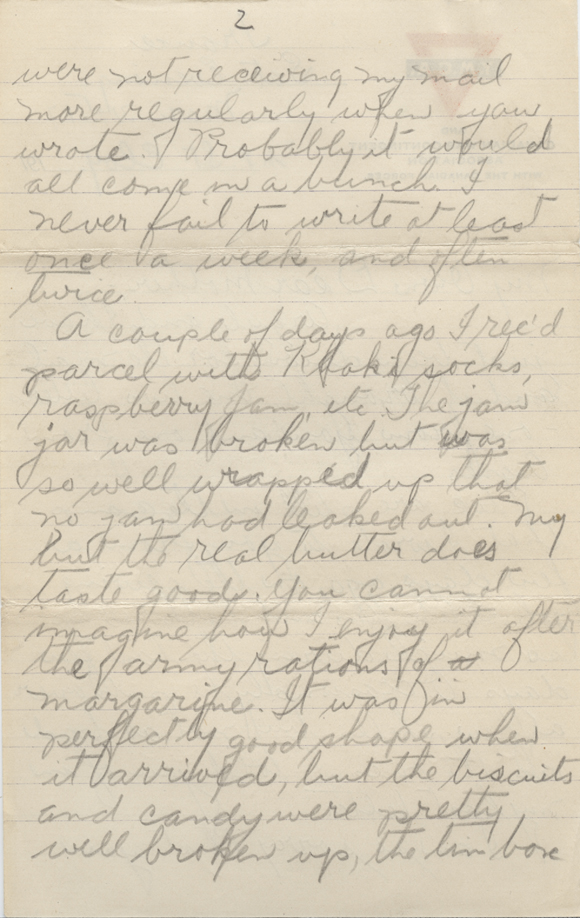 2
were not receiving my mail
more regularly when you
wrote. Probably it would
all come in a bunch. I
never fail to write at least
once a week, and often
twice.
A couple of days ago I rec'd
parcel with Khaki socks,
raspberry jam, etc. The jam
jar was broken but was
so well wrapped up that
no jam had leaked out. My
but the real butter does
taste good. You cannot
imagine how I enjoy it after
the army rations of
margarine. It was in
perfectly good shape when
it arrived, but the biscuits
and candy were pretty
well broken up, the tin box